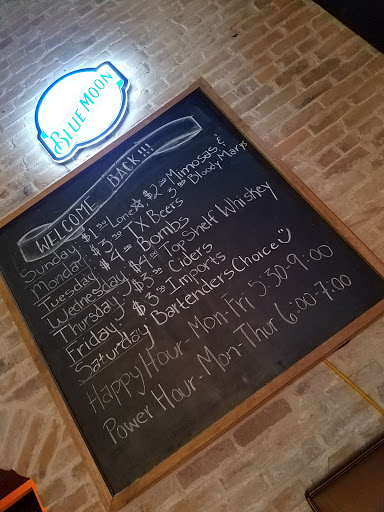 BLUE MOON
WELCOME BACK!!!
Sunday: $1.50 Lone☆, $2.00 Mimosas &
3.00 Bloody Marys
Monday: $3.50 TX Beers
Tuesday: $4.00 Bombs
Wednesday: $4.00 Top Shelf Whiskey
Thursday: $3.50 Ciders
Friday: $3.50 Imports
Saturday Bartenders Choice☺
Happy Hour - Mon-Fri 5:30-9:00
Power Hour - Mon-Thur 6:00-7:00